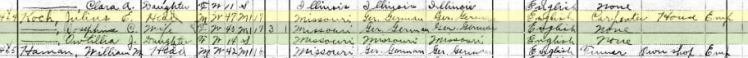 —, Clara A. Daughter F W 11 S Illinois Illinois Illinois English None
Koch, Julius E. Head M W 47 M1 17 Missouri Ger. German Ger. German English Carpenter House Emp
—, Josephine C. Wife F W 40 M1 17 3 Missouri Ger. German Ger. German English None
—, Daughter F W 14 S Missouri Missouri Missouri English None
Haman, William Head M W 42 M1 Missouri Ger. German Ger. German English Tinner Own shop Emp